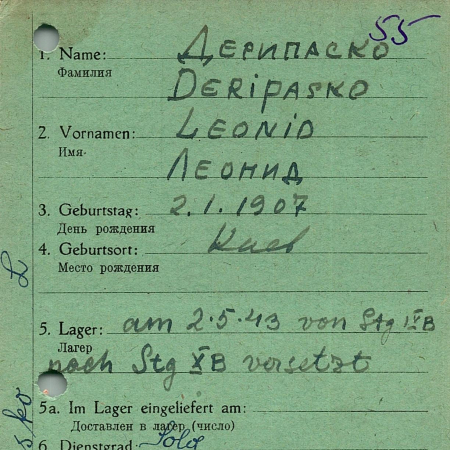 55
1. Name: Дерипаско
Фамилия
DERIPASKO
2. Vornamen: LEONID
Имя. Леонид
3. Geburtstag: 2.1.1907
День рождения
4. Geburtsort: Киев
Место рождения
5. Lager: am 2.5.43 von Stg IXB
Лагер
nach Stg XB versetzt
5a. Im Lager eingeliefert am:
Доставлен в лагер (число)
6. Dienstgrad: Sold